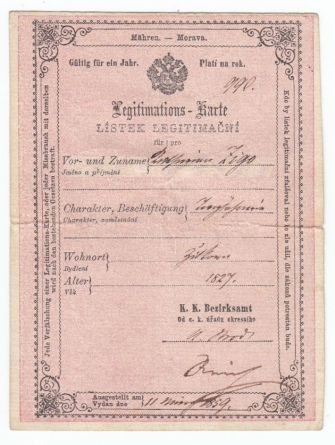 Mähren. — Morava.
Gültig für ein Jahr. Platí na rok.
990.
Legitimations-Karte
LÍSTEK LEGITIMAČNÍ
für | pro
Vor- und Zuname
Jméno a příjmění
Charakter, Beschäftigung
Charakter, zaměstnání
Wohnort
Bydlení
Alter 1827.
Věk
K. K. Bezirksamt
Od c. k. úřadu okresního
Brod
Ausgestellt am 11 859.
Vydán dne
Jede Verfälschung einer Legitimations-Karte, oder jeder Missbrauch mit derselben
wird nach den bestehenden Gesetzen bestraft.
Kdo by lístek legitimační zfalšoval nebo ho zle užil, dle zákonů potrestán bude.